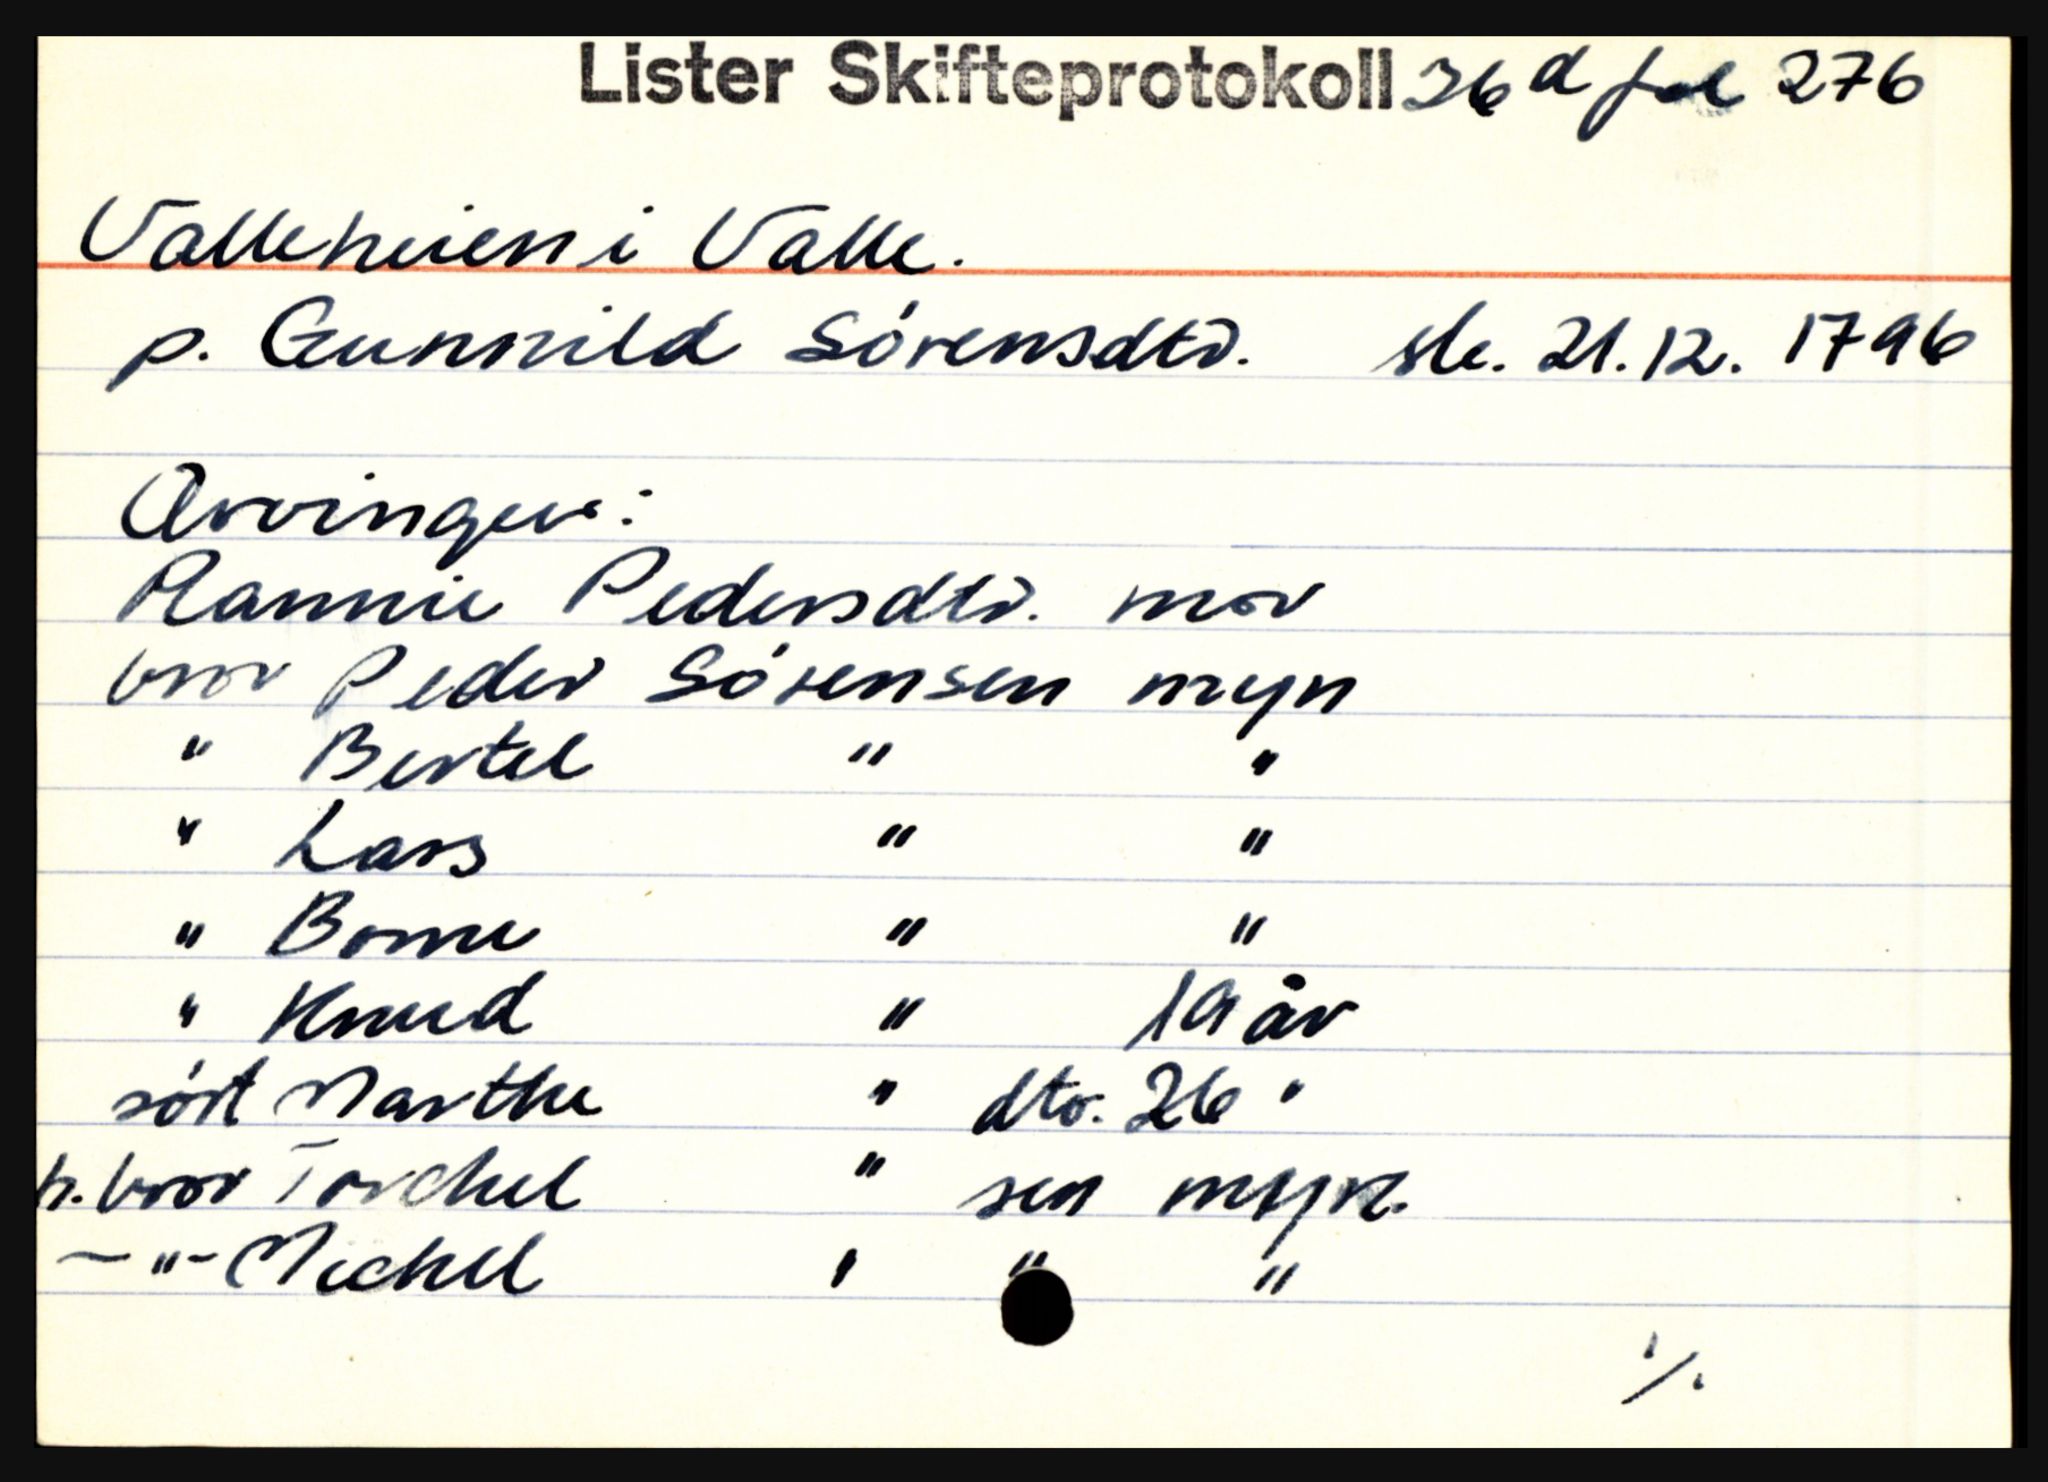 Lister Skifteprotokoll 36 d fol 276
Valleheien i Valle.
p. Gunnild Sórensdtr. sk. 21.12. 1796
Arvinger:
Rannie Pedersdtr. mor
bror Peder Sórensen myn
" Bertel " "
" Lars " "
" Borne " "
" Knud " 19 år
sóst Marthe " dtr. 26 "
h. bror Torchel " sen myn.
-"- Michel " " "
1/.